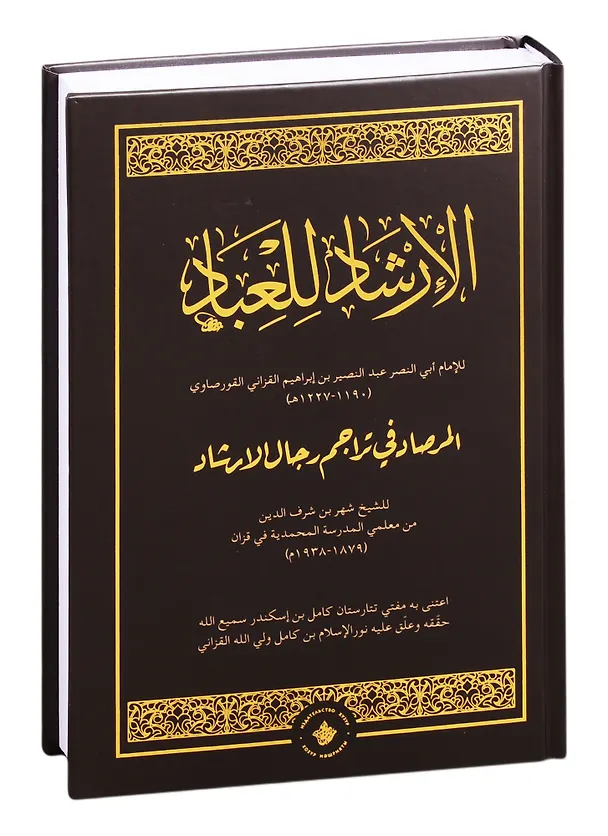 الإرشاد للعباد
للإمام أبي النصر عبد النصير بن إبراهيم القزاني القورصاوي
(١١٩٠-١٢٢٧هـ)
المرصاد في تراجم رجال الارشاد
للشيخ شهر بن شرف الدين
من معلمي المدرسة المحمدية في قزان
(١٨٧٩-١٩٣٨م)
اعتنى به مفتي تتارستان كامل بن إسكندر سميع الله
حقّقه وعلّق عليه نورالإسلام بن كامل ولي الله القزاني
ИЗДАТЕЛЬСТВО ХУЗУР
ХОЗУР НӘШРИЯТЫ